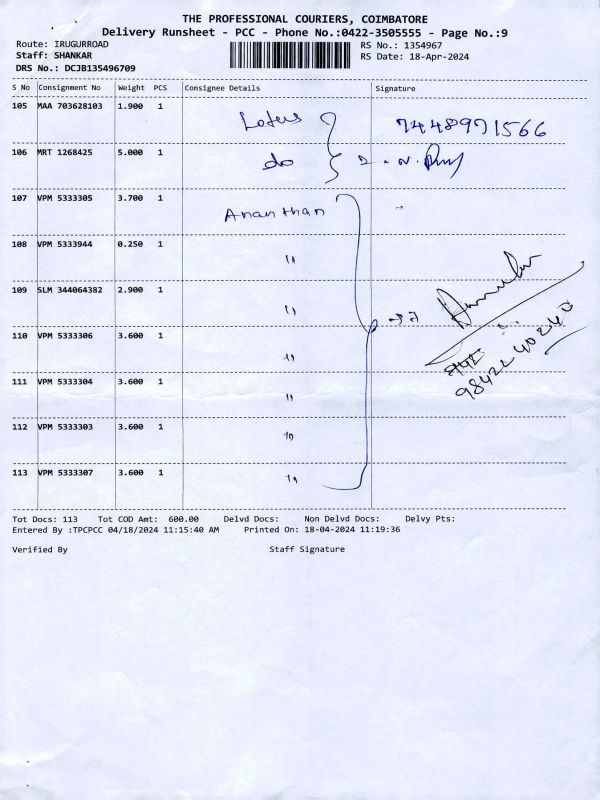 THE PROFESSIONAL COURIERS, COIMBATORE
Delivery Runsheet - PCC - Phone No.:0422-3505555 - Page No.:9
Route: IRUGURROAD RS No.: 1354967
Staff: SHANKAR RS Date: 18-Apr-2024
DRS No.: DCJB135496709
S No Consignment No Weight PCS Consignee Details Signature
105 MAA 703628103 1.900 1 Lotus 7448971566
106 MRT 1268425 5.000 1 do
107 VPM 5333305 3.700 1 Ananthan
108 VPM 5333944 0.250 1 "
109 SLM 344064382 2.900 1 "
110 VPM 5333306 3.600 1 "
9842240240
111 VPM 5333304 3.600 1 "
112 VPM 5333303 3.600 1 "
113 VPM 5333307 3.600 1 "
Tot Docs: 113 Tot COD Amt: 600.00 Delvd Docs: Non Delvd Docs: Delvy Pts:
Entered By :TPCPCC 04/18/2024 11:15:40 AM Printed On: 18-04-2024 11:19:36
Verified By Staff Signature